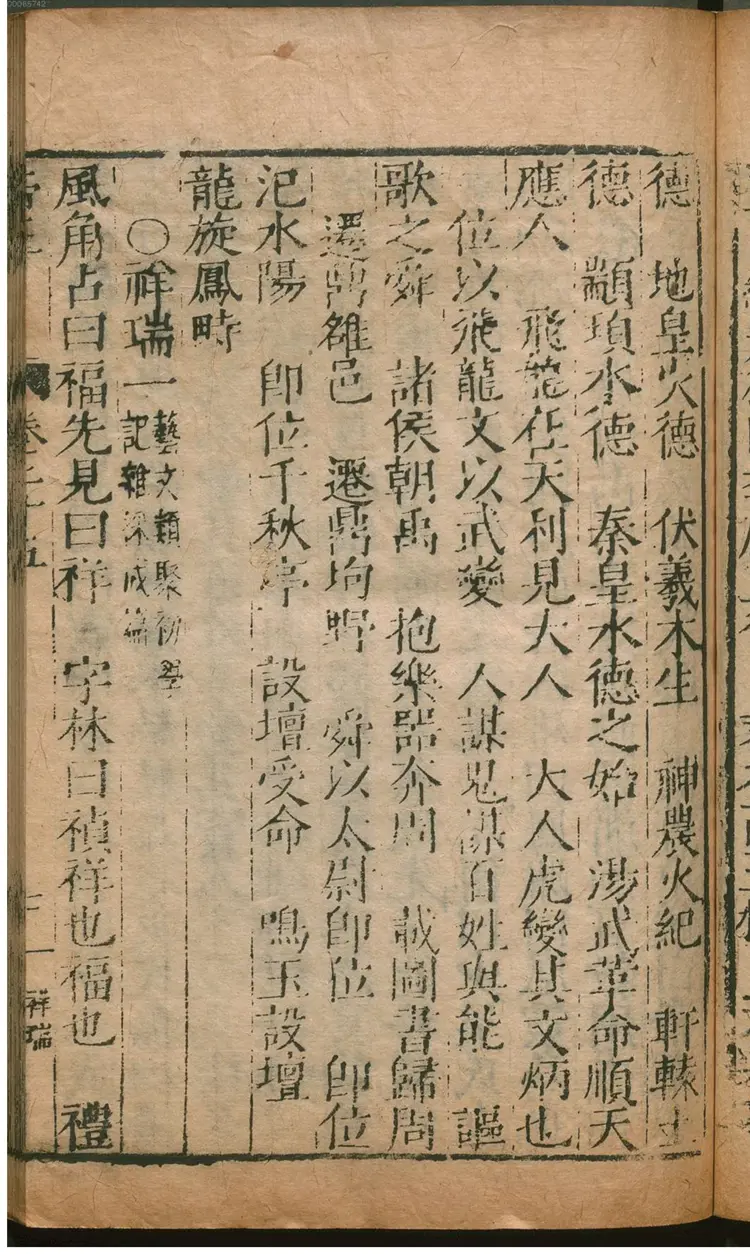 德 地皇火德 伏羲木生 神農火紀 軒轅土
德 顓頊水德 秦皇水德之始 湯武革命順天
應人 飛龍在天利見大人 大人虎變其文炳也
位以飛龍文以武變 人謀鬼謀百姓與能 謳
歌之舜 諸侯朝禹 抱樂器奔周 載圖書歸周
還鼎雒邑 遷鼎坰野 舜以太尉即位 即位
汜水陽 即位千秋亭 設壇受命 鳴玉設壇
龍旋鳳時
○祥瑞一 藝文類聚初學
記雜深成篇
風角占曰福先見曰祥 字林曰禎祥也福也 禮
卷之十五
祥瑞
00065742